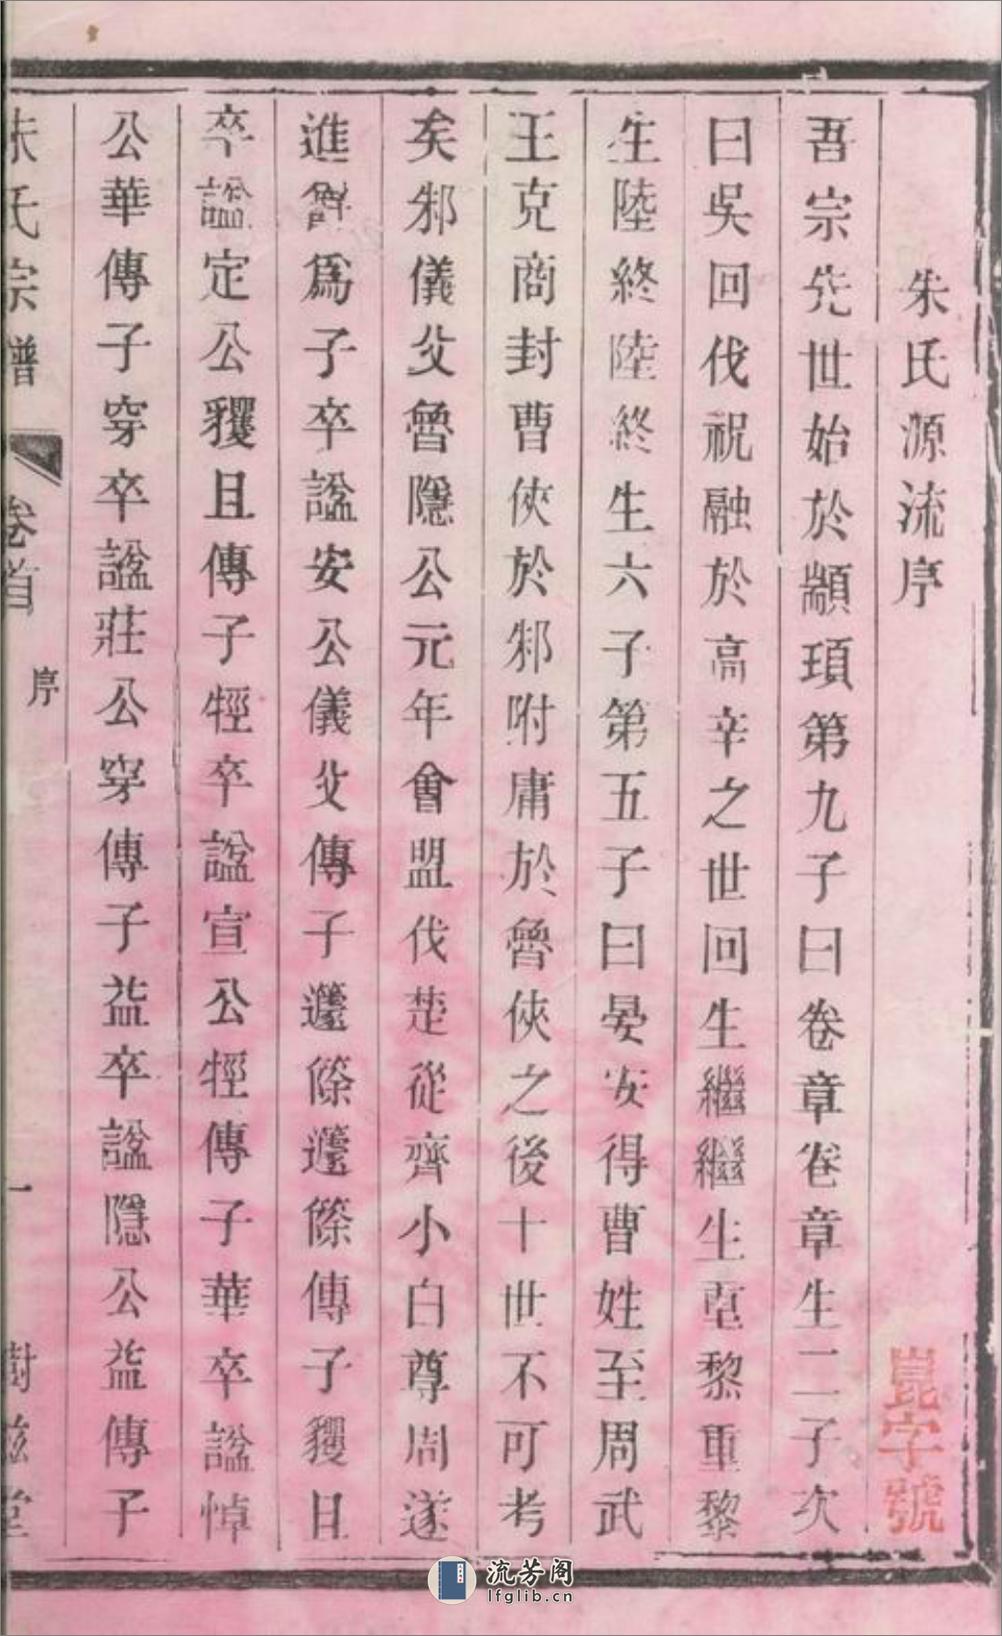 朱氏源流序
崑字號
吾宗先世始於顓頊第九子曰卷章卷章生二子次
曰吳回伐祝融於高辛之世回生繼繼生重黎重黎
生陸終陸終生六子第五子曰晏安得曹姓至周武
王克商封曹俠於邾附庸於魯俠之後十世不可考
矣邾儀父魯隱公元年會盟伐楚從齊小白尊周遂
進爵爲子卒諡安公儀父傳子蘧篨蘧篨傳子貜且
卒諡定公貜且傳子牼卒諡宣公牼傳子華卒諡悼
公華傳子穿卒諡莊公穿傳子益卒諡隱公益傳子
朱氏宗譜 卷首 序 一 樹滋堂
流芳阁
lfglib.cn